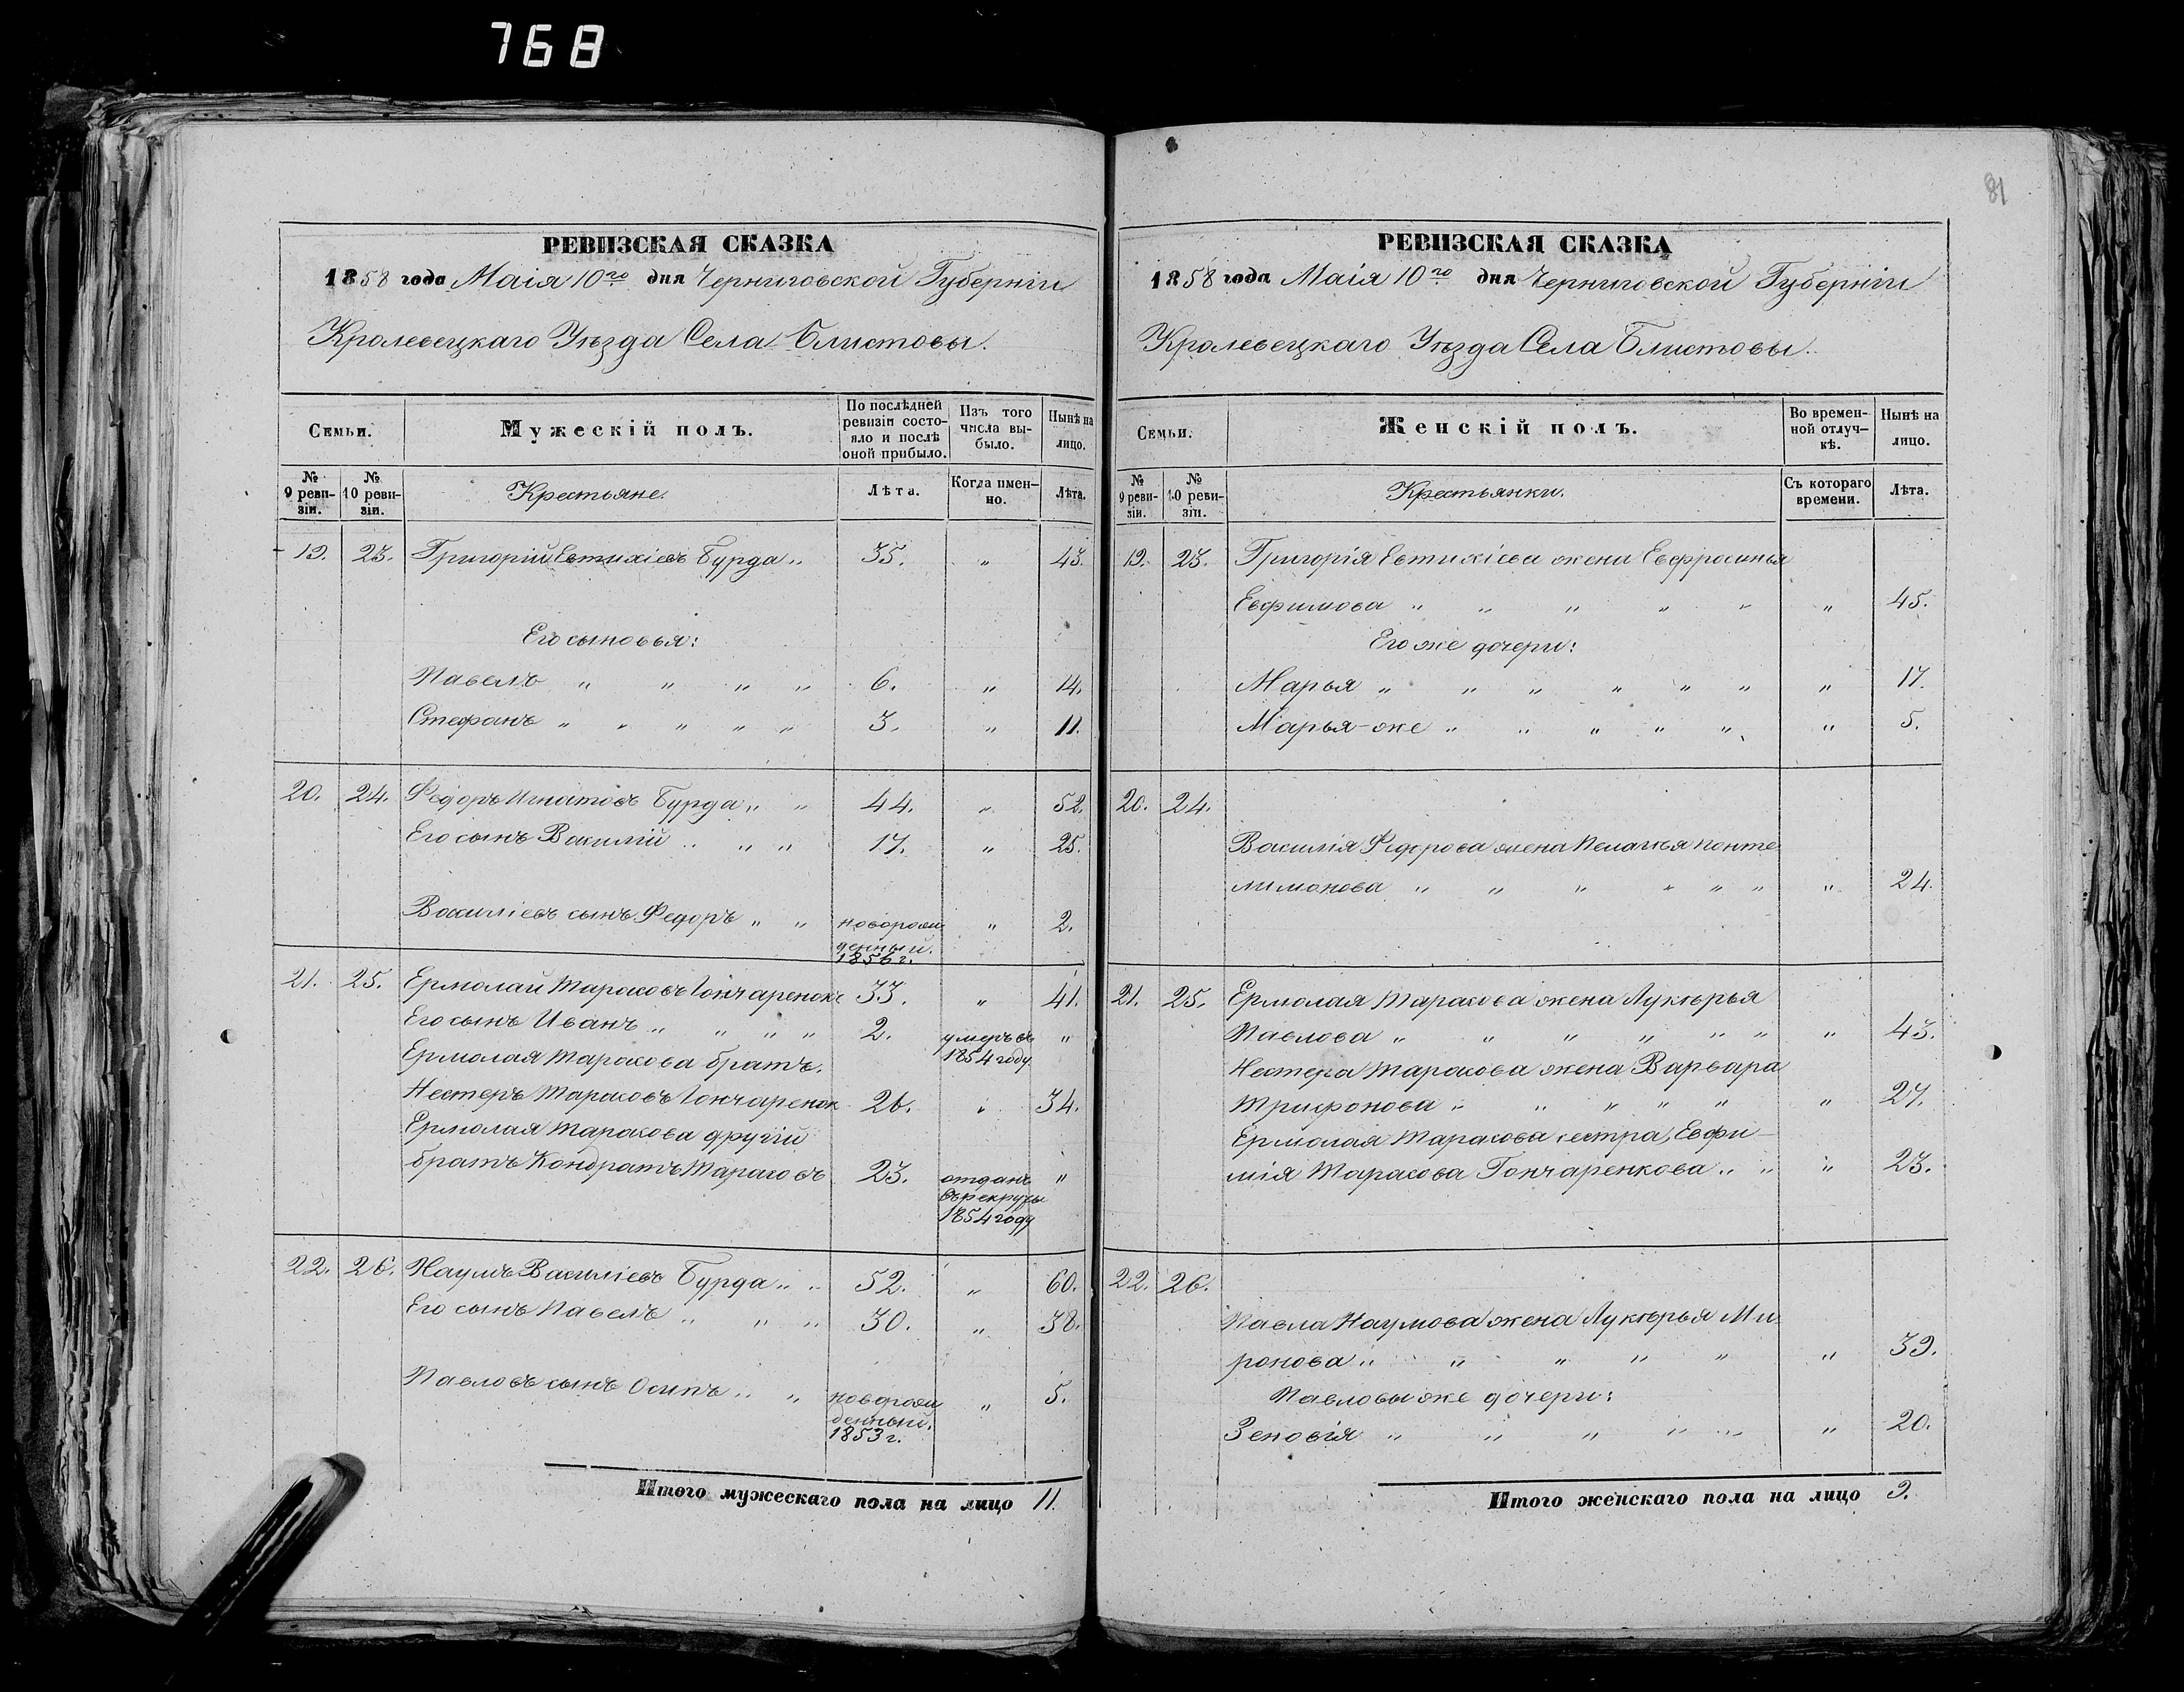 768
РЕВИЗСКАЯ СКАЗКА
1858 года Маія 10го дня Черниговской Губерніи
Кролевецкаго Уѣзда Села Блистовы.
Семьи.
Мужескій полъ.
По послѣдней ревизіи состояло и послѣ оной прибыло.
Изъ того числа выбыло.
Нынѣ на лицо.
№ 9 ревизіи.
№ 10 ревизіи.
Крестьяне.
Лѣта.
Когда именно.
Лѣта.
19. 23. Григорій Евтихіевъ Бурда „ 35. „ 43.
Его сыновья:
Павелъ „ „ „ „ 6. „ 14.
Стефанъ „ „ „ „ „ 3. „ 11.
20. 24. Федоръ Игнатовъ Бурда „ „ 44. „ 52.
Его сынъ Василій „ „ „ 17. „ 25.
Василіевъ сынъ Федоръ „ „ новорожденный. 1856 г. „ 2.
21. 25. Ермолай Тарасовъ Гончаренокъ 33. „ 41.
Его сынъ Иванъ „ „ „ „ 2. умеръ въ 1854 году „
Ермолая Тарасова братъ.
Нестеръ Тарасовъ Гончаренок 26. „ 34.
Ермолая Тарасова другій
братъ Кондратъ Тарасовъ 23. отданъ въ рекруты 1854 году „
22. 26. Наумъ Василіевъ Бурда „ „ 52. „ 60.
Его сынъ Павелъ „ „ „ 30. „ 38.
Павловъ сынъ Осипъ „ „ новорожденный. 1853 г. „ 5.
Итого мужескаго пола на лицо 11.
81
РЕВИЗСКАЯ СКАЗКА
1858 года Маія 10го дня Черниговской Губерніи
Кролевецкаго Уѣзда Села Блистовы.
Семьи.
Женскій полъ.
Во временной отлучкѣ.
Нынѣ на лицо.
№ 9 ревизіи.
№ 10 ревизіи.
Крестьянки.
Съ котораго времени.
Лѣта.
19. 23. Григорія Евтихіева жена Евфросинья
Евфимова „ „ „ „ „ „ 45.
Его же дочери:
Марья „ „ „ „ „ „ „ 17.
Марья-же „ „ „ „ „ „ 5.
20. 24.
Василія Федорова жена Пелагѣя Понте
лимонова „ „ „ „ „ „ „ 24.
21. 25. Ермолая Тарасова жена Лукѣрья
Павлова „ „ „ „ „ „ „ 43.
Нестера Тарасова жена Варвара
Трифонова „ „ „ „ „ „ 27.
Ермолая Тарасова сестра, Евфи-
мія Тарасова Гончаренкова „ „ „ 23.
22. 26.
Павла Наумова жена Лукѣрья Ми
ронова „ „ „ „ „ „ 39.
Павловы же дочери:
Зеновія „ „ „ „ „ „ 20.
Итого женскаго пола на лицо 9.